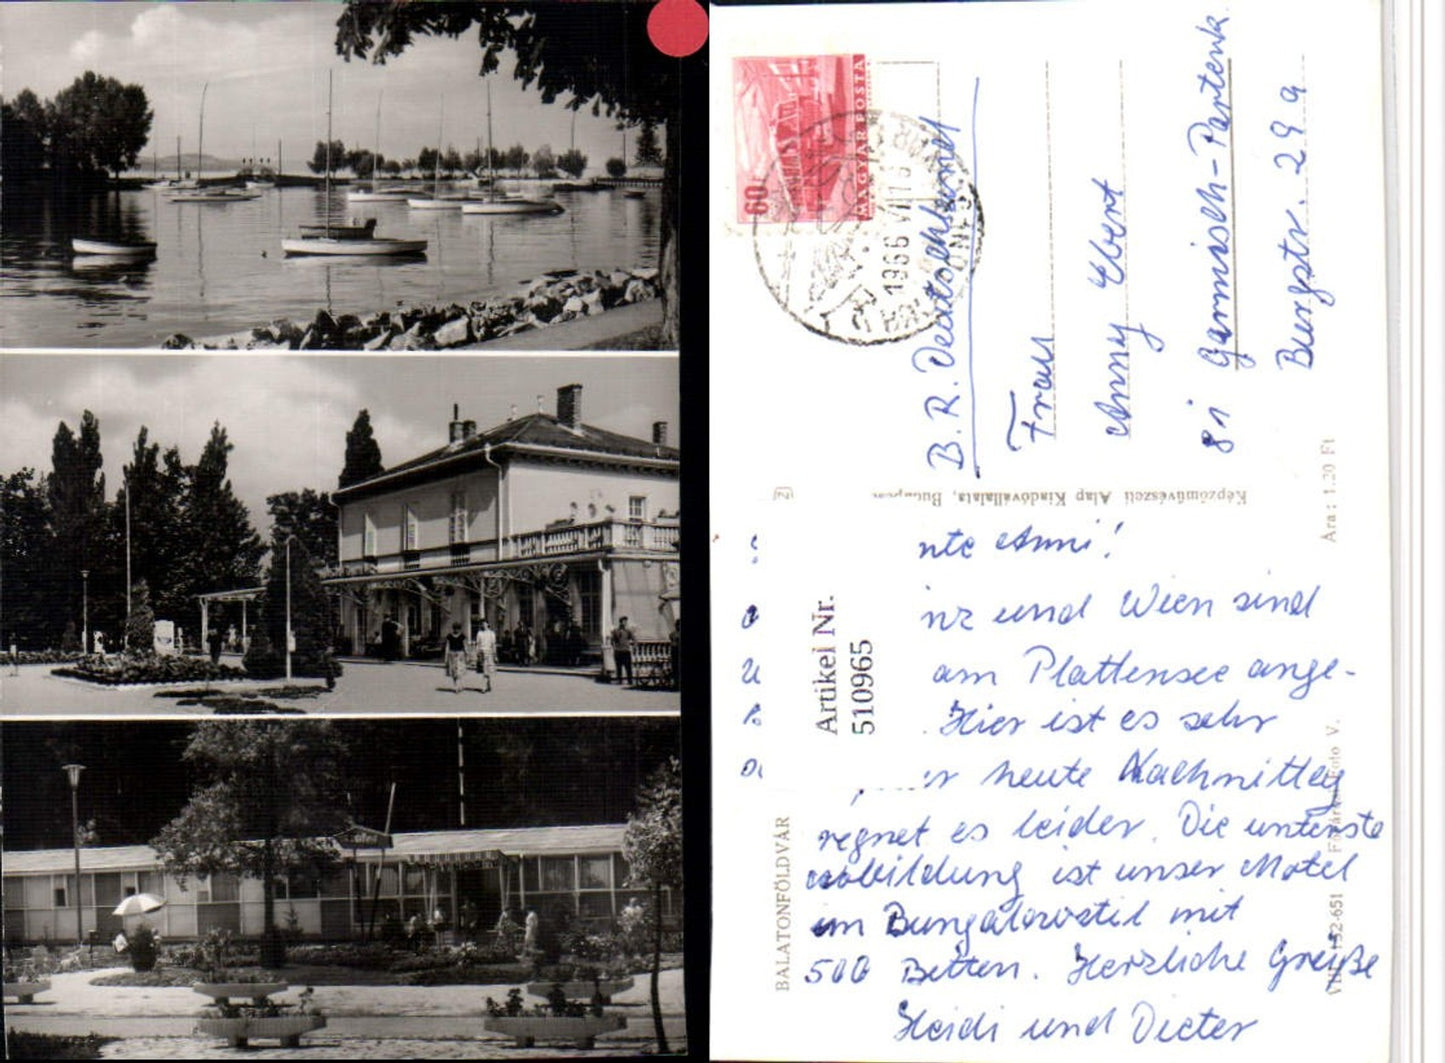 60f
MAGYAR POSTA
1966 VII
B.R. Deutschland
Frau
Anny Ebert
81 Garmisch-Partenk.
Burgstr. 29a
Képzőművészeti Alap Kiadóvállalata, Budapest
Ára: 1.20 Ft
Artikel Nr.
510965
Anni!
und Wien sind
am Plattensee ange-
Hier ist es sehr
heute Nachmittag
regnet es leider. Die unterste
Abbildung ist unser Motel
im Bungalowstil mit
500 Betten. Herzliche Grüße
Heidi und Dieter
BALATONFÖLDVÁR